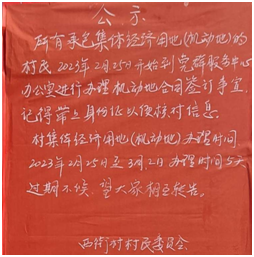 公示
所有承包集体经济用地(机动地)的
村民2023年2月25日开始到党群服务中心
办公室进行办理机动地合同签订事宜,
记得带上身份证以便核对信息。
村集体经济用地(机动地)办理时间
2023年2月25日至3月2日办理时间5天
过期不候,望大家相互转告。
西街村村民委员会